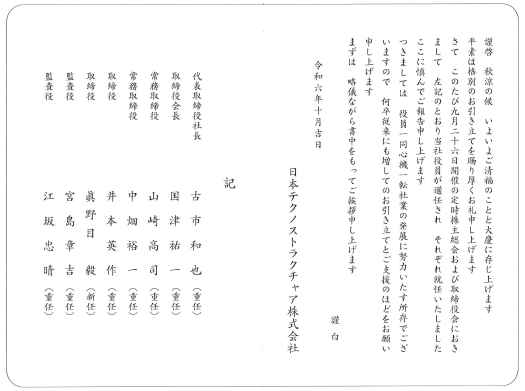 謹啓　秋涼の候　いよいよご清福のことと大慶に存じ上げます
平素は格別のお引き立てを賜り厚くお礼申し上げます
さて　このたび九月二十六日開催の定時株主総会および取締役会におき
まして　左記のとおり当社役員が選任され　それぞれ就任いたしました
ここに慎んでご報告申し上げます
つきましては　役員一同心機一転社業の発展に努力いたす所存でござ
いますので　何卒従来にも増してのお引き立てとご支援のほどをお願い
申し上げます
まずは　略儀ながら書中をもってご挨拶申し上げます
謹白
令和六年十月吉日
日本テクノストラクチャア株式会社
記
代表取締役社長　古市和也（重任）
取締役会長　国津祐一（重任）
常務取締役　山崎高司（重任）
常務取締役　中畑裕一（重任）
取締役　井本英作（重任）
取締役　眞野目毅（新任）
監査役　宮島章吉（重任）
監査役　江坂忠晴（重任）